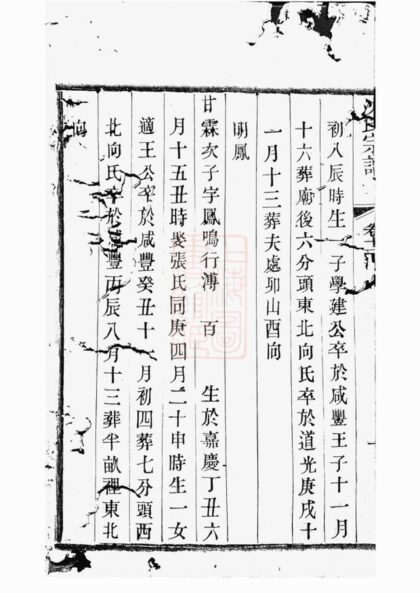 氏宗譜 卷
初八辰時生 子學建公卒於咸豐壬子十一月
十六葬廟後六分頭東北向氏卒於道光庚戌十
一月十三葬夫處卯山西向
明鳳
甘霖次子字鳳鳴行溥 百 生於嘉慶丁丑六
月十五丑時娶張氏同庚四月二十申時生一女
適王公卒於咸豐癸丑十 月初四葬七分頭西
北向氏卒於咸豐丙辰八月十三葬半畝裡東北
向